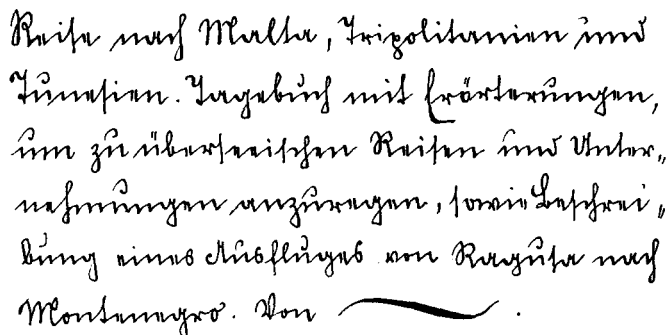 Reise nach Malta, Tripolitanien und
Tunesien. Tagebuch mit Erörterungen,
um zu überseeischen Reisen und Unter„
nehmungen anzuregen, sowie Beschrei„
bung eines Ausfluges von Ragusa nach
Montenegro. Von .